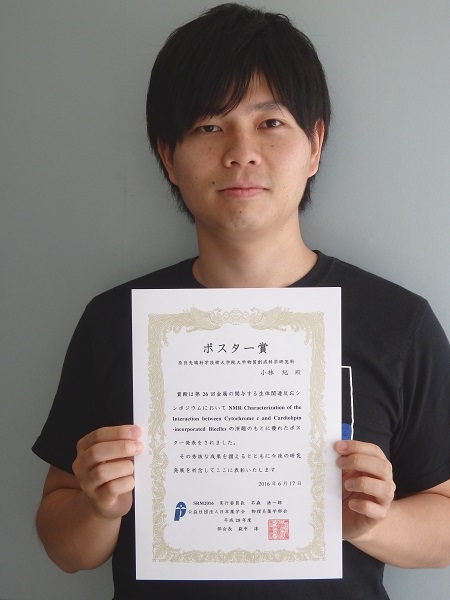 ポスター賞
奈良先端科学技術大学院大学物質創成科学研究科
小林 殿
貴殿は第 26 回金属の関与する生体関連反応シ
ンポジウムにおいて NMR Characterization of the
Interaction between Cytochrome c and Cardiolipin
-incorporated Bicelles の演題のもとに優れたポス
ター発表をされました。
その秀抜な成果を讃えるとともに今後の研究
発展を祈念してここに表彰いたします
2016 年 6 月 17 日
SRM2016 実行委員長
公益社団法人日本薬学会 物理系薬学部会
平成 28 年度
部会長